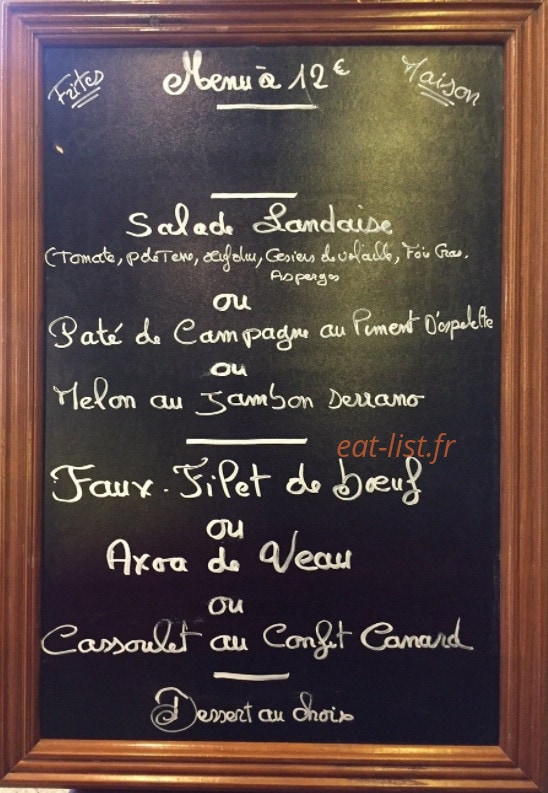 Frites
Menu à 12 €
Maison
Salade Landaise
(Tomate, p de Terre, œuf dur, Gesiers de volaille, Foie Gras,
Asperges
ou
Paté de Campagne au Piment D'espelette
ou
Melon au Jambon Serrano
eat-list.fr
Faux-Filet de bœuf
ou
Axoa de Veau
ou
Cassoulet au Confit Canard
Dessert au choix